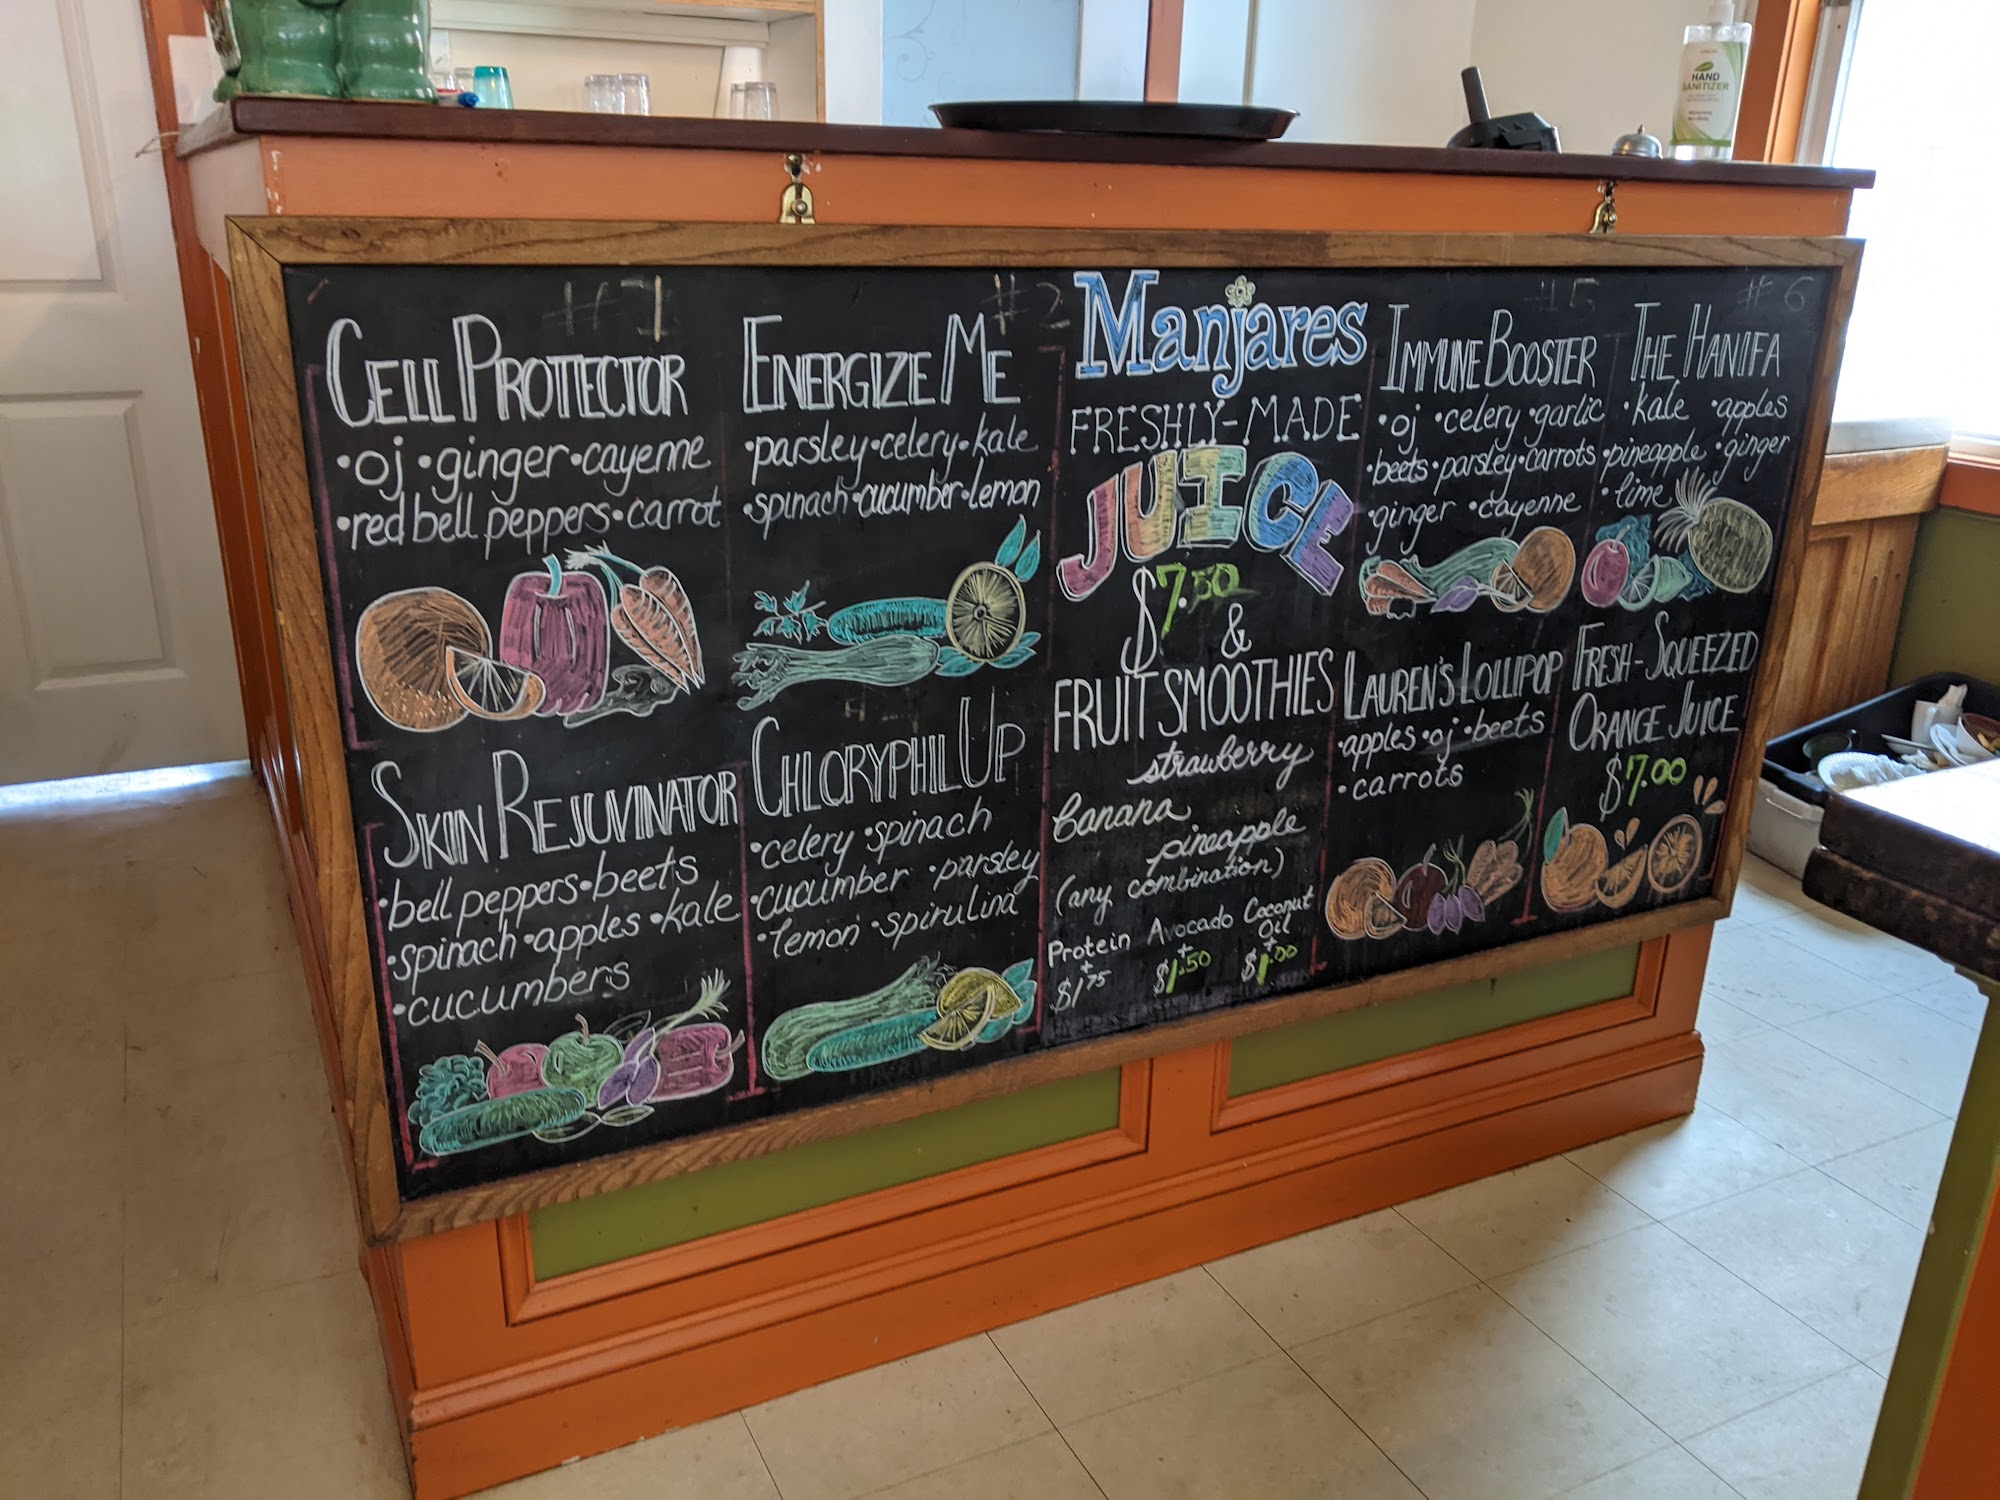 HAND
SANITIZER
#1
CELL PROTECTOR
•oj •ginger •cayenne
•red bell peppers •carrot
#2
ENERGIZE ME
•parsley •celery •kale
•spinach •cucumber •lemon
SKIN REJUVINATOR
•bell peppers •beets
•spinach •apples •kale
•cucumbers
CHLORYPHIL UP
•celery •spinach
•cucumber •parsley
•lemon •spirulina
Manjares
FRESHLY-MADE
JUICE
$7.50
&
FRUIT SMOOTHIES
strawberry
banana
pineapple
(any combination)
Protein
+
$1.75
Avocado
+
$1.50
Coconut
Oil
+
$1.00
#5
IMMUNE BOOSTER
•oj •celery •garlic
•beets •parsley •carrots
•ginger •cayenne
#6
THE HANIFA
•kale •apples
•pineapple •ginger
•lime
LAUREN'S LOLLIPOP
•apples •oj •beets
•carrots
FRESH-SQUEEZED
ORANGE JUICE
$7.00